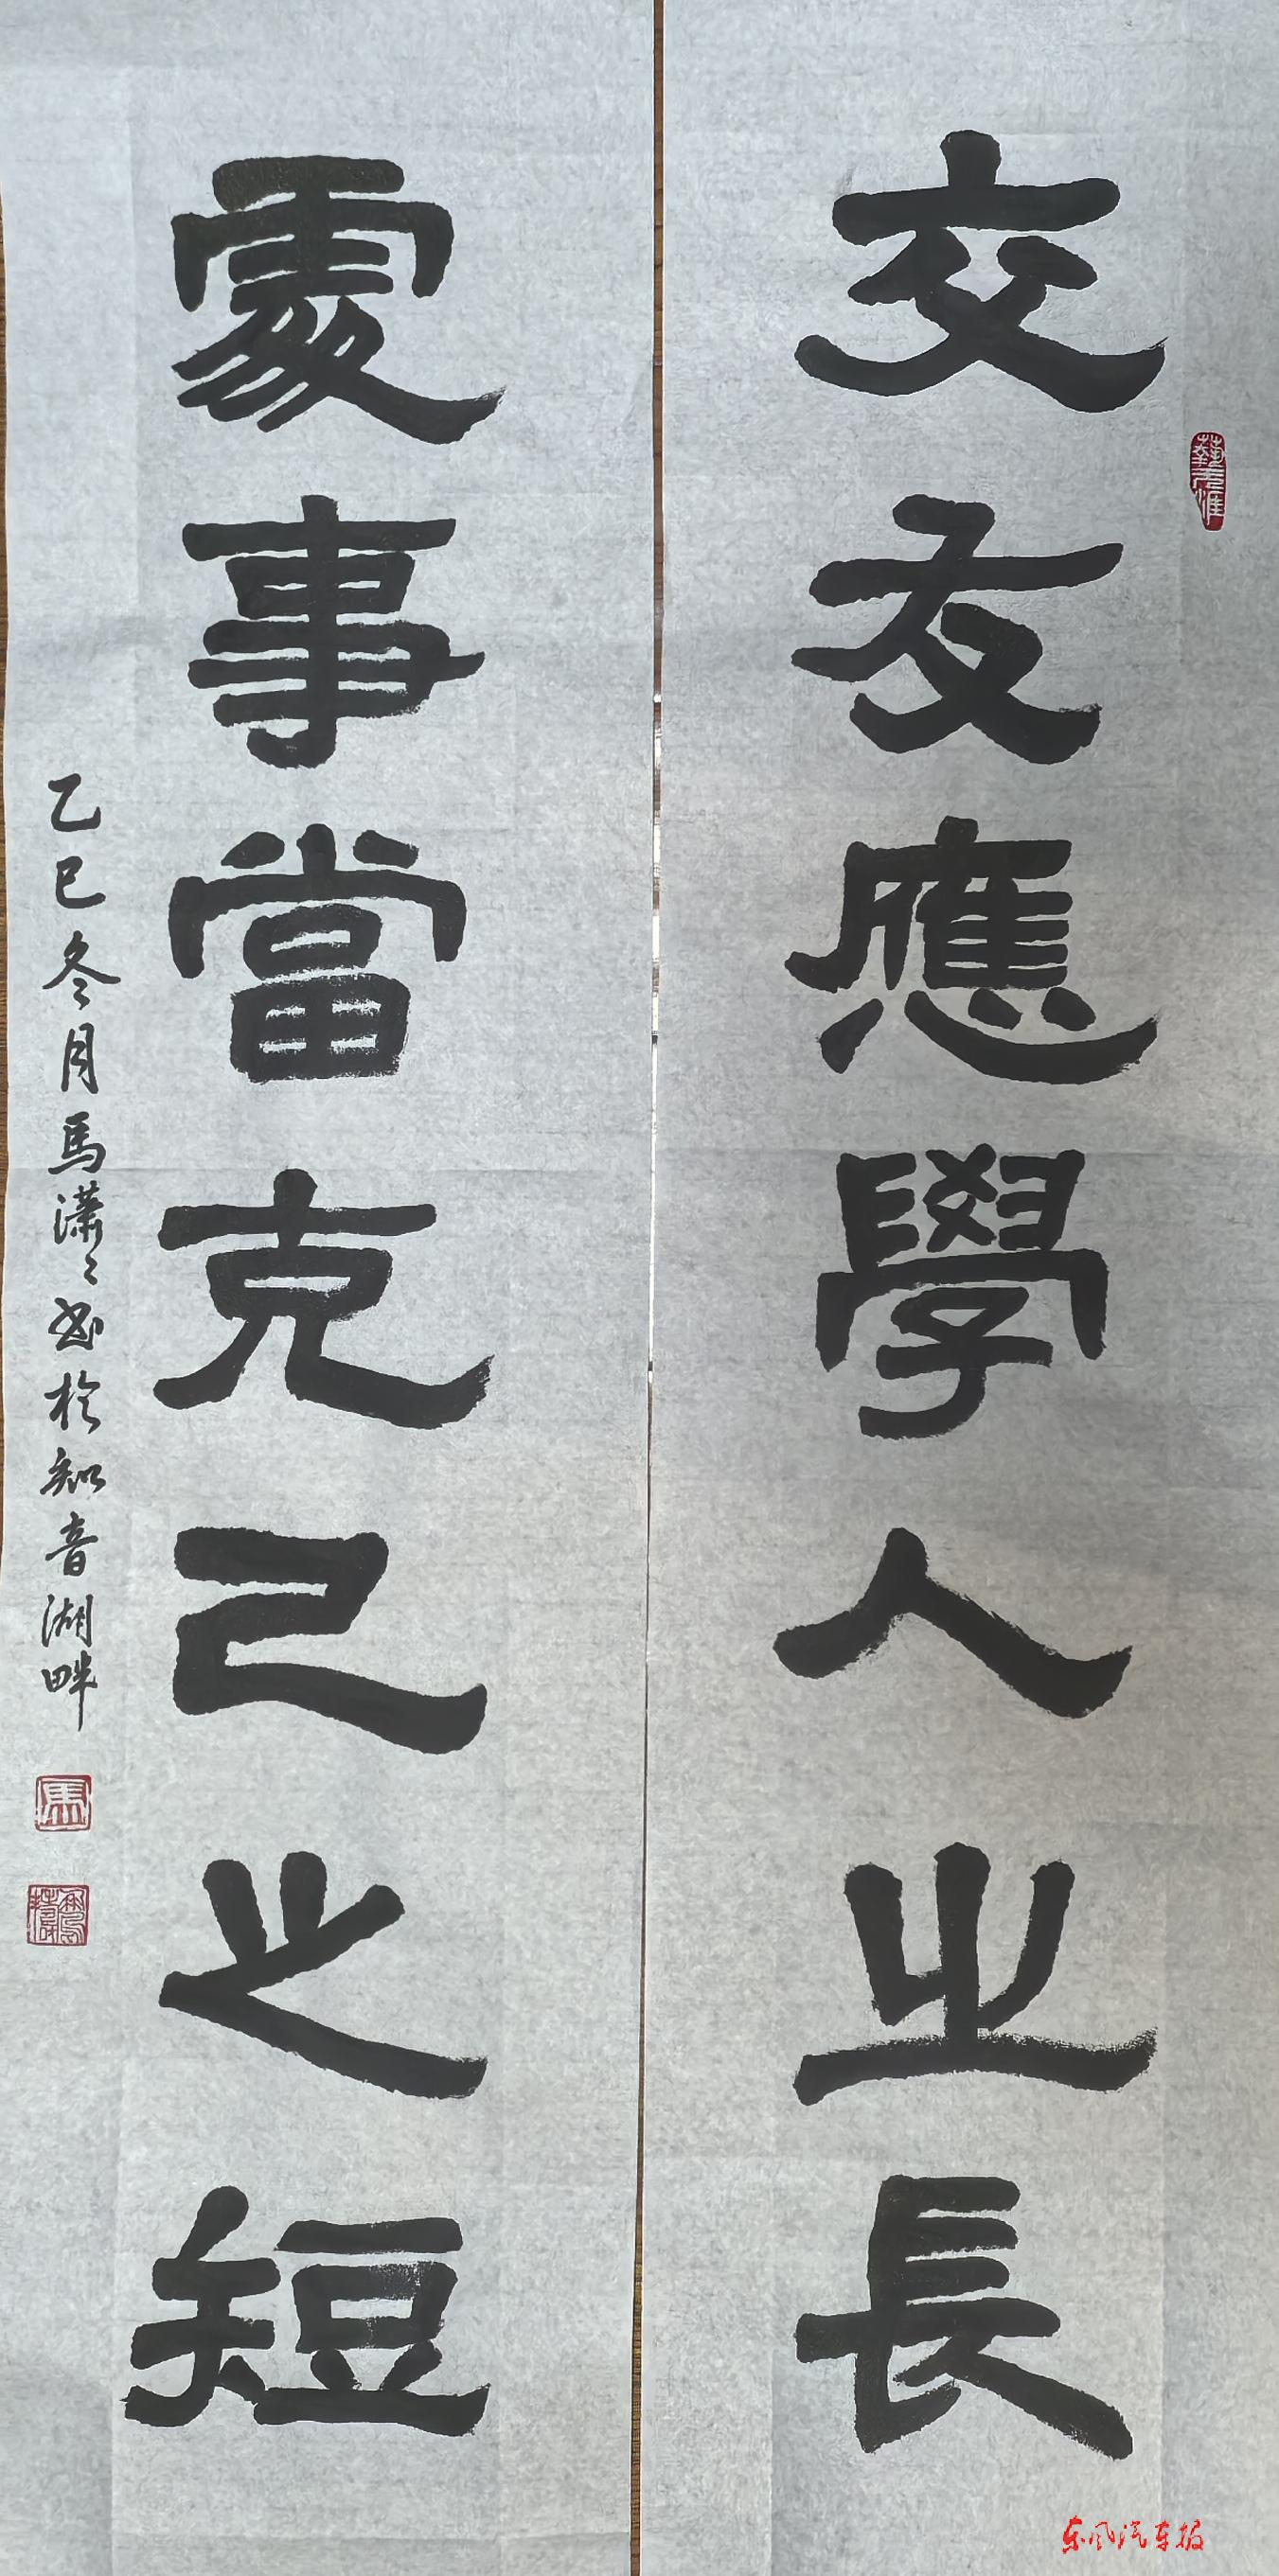 交友應學人之長
處事當克己之短
乙巳冬月馬瀟瀟書於知音湖畔
馬
东风汽车报